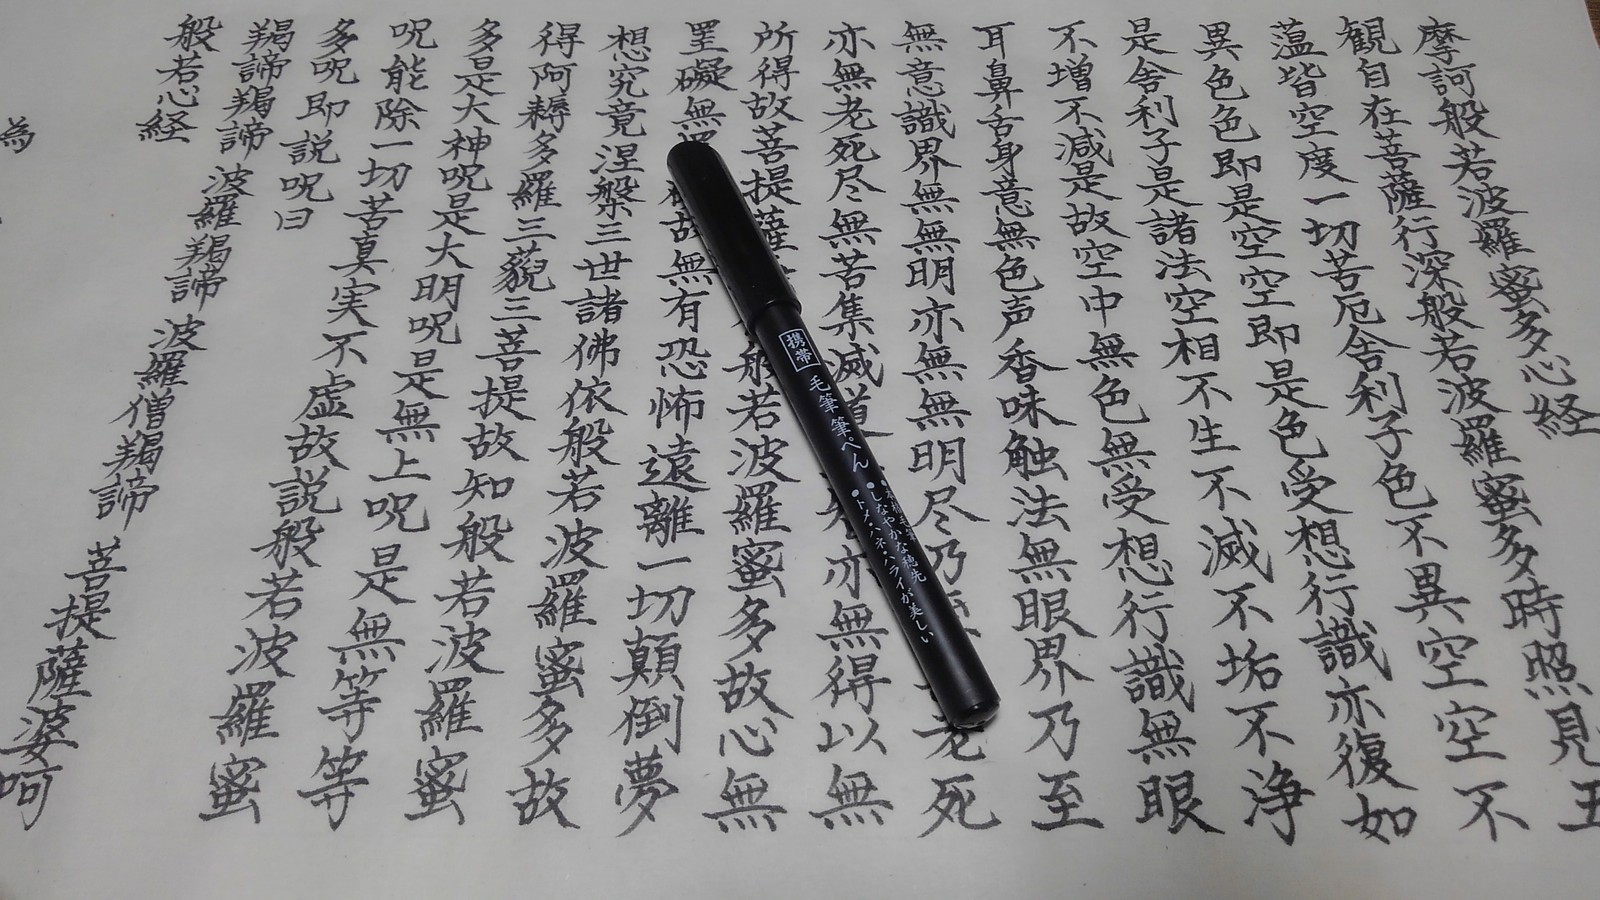 摩訶般若波羅蜜多心経
観自在菩薩行深般若波羅蜜多時照見五
蘊皆空度一切苦厄舎利子色不異空空不
異色色即是空空即是色受想行識亦復如
是舎利子是諸法空相不生不滅不垢不浄
不増不減是故空中無色無受想行識無眼
耳鼻舌身意無色声香味触法無眼界乃至
無意識界無無明亦無無明尽乃老死
亦無老死尽無苦集滅道亦無得以無
所得故菩提薩般若波羅蜜多故心無
罣礙無故無有恐怖遠離一切顛倒夢
想究竟涅槃三世諸佛依般若波羅蜜多故
得阿耨多羅三藐三菩提故知般若波羅蜜
多是大神呪是大明呪是無上呪是無等等
呪能除一切苦真実不虚故説般若波羅蜜
多呪即説呪曰
羯諦羯諦 波羅羯諦 波羅僧羯諦 菩提薩婆呵
般若心経
為
携帯 毛筆筆ぺん
●本格毛筆
●しなやかな穂先
●トメ・ハネ・ハライが美しい